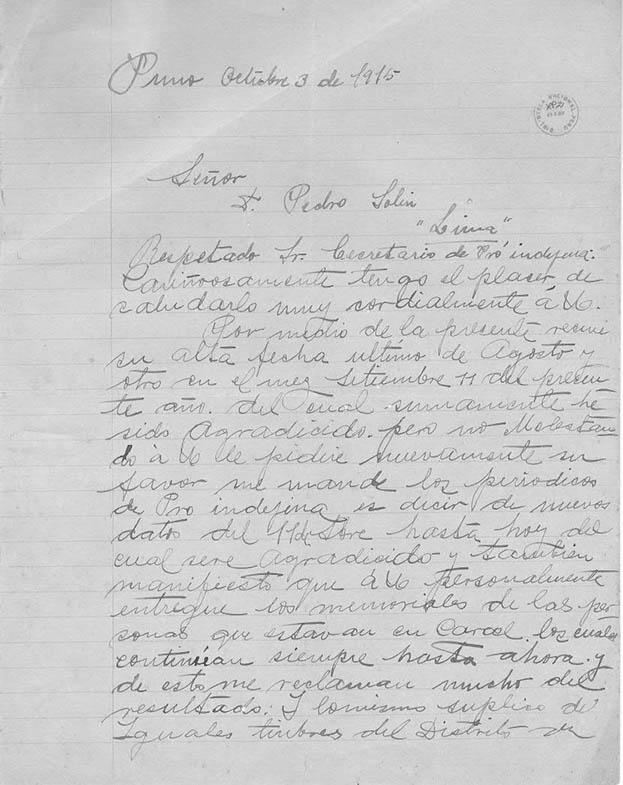 Puno Octubre 3 de 1915
BIBLIOTECA NACIONAL PERU
Señor
D. Pedro Solin
"Lima"
Respetado Sr. Cecretario de Pró indejena.
Cariñosamente tengo el placer, de
saludarlo muy cordialmente á U6.
Por medio de la presente recivi
su alta fecha ultimo de Agosto y
otro en el mez Setiembre 11 del presen
te año. del cual sumamente hé
sido Agradicido. pero no Molestan
do a U6 le pidire nuevamente su
favor me mande los periodicos
de Pro indejena es decir de nuevos
datos del hasta hoy del
cual sere Agradicido y tambien
manifiesto que á U6 personalmente
entregue los memoriales de las per
sonas que estavan en Carcel. los cuales
continúan siempre hasta ahora. y
de esto me reclaman mucho del
resultado: I lomismo suplico de
Iguales timbres del Distrito de